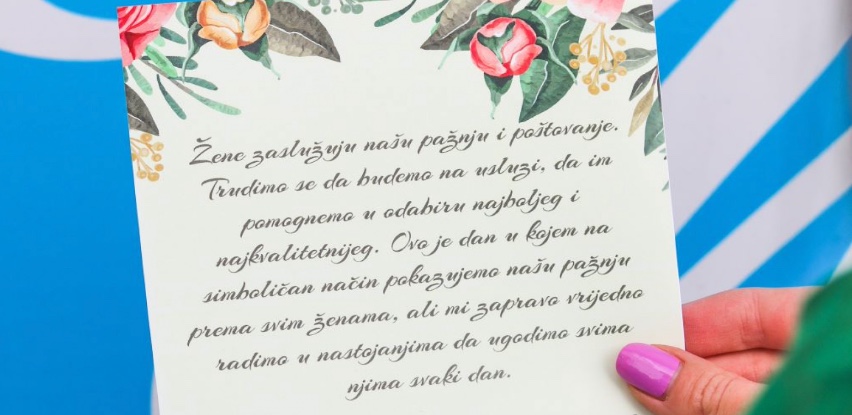 Žene zaslužuju našu pažnju i poštovanje.
Trudimo se da budemo na usluzi, da im
pomognemo u odabiru najboljeg i
najkvalitetnijeg. Ovo je dan u kojem na
simboličan način pokazujemo našu pažnju
prema svim ženama, ali mi zapravo vrijedno
radimo u nastojanjima da ugodimo svima
njima svaki dan.